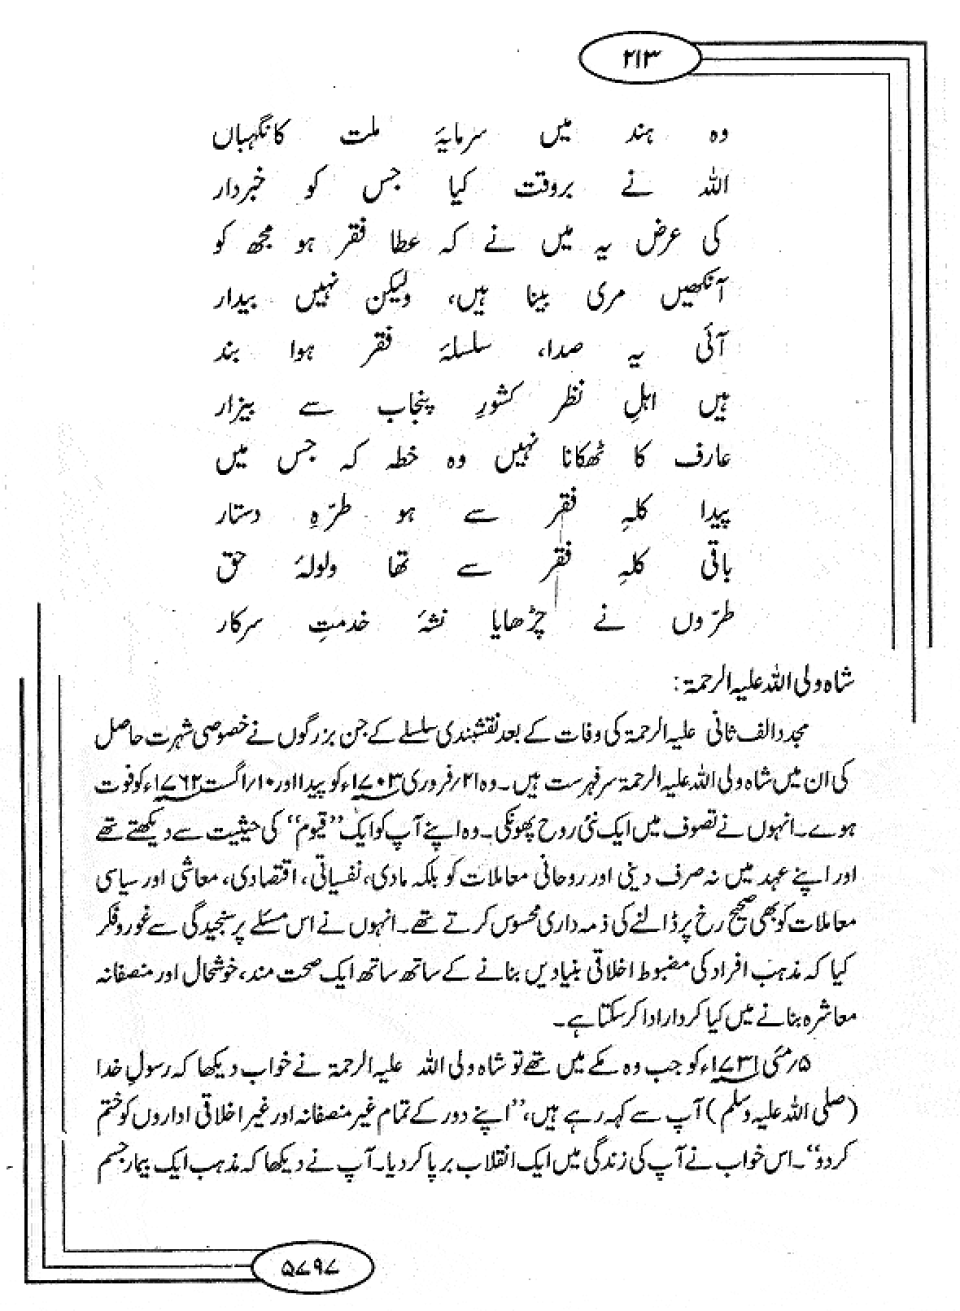 ۲۱۳
وہ ہند میں سرمایۂ ملت کا نگہباں
اللہ نے بروقت کیا جس کو خبردار
کی عرض یہ میں نے کہ عطا فقر ہو مجھ کو
آنکھیں مری بینا ہیں، ولیکن نہیں بیدار
آئی یہ صدا، سلسلۂ فقر ہوا بند
ہیں اہلِ نظر کشورِ پنجاب سے بیزار
عارف کا ٹھکانا نہیں وہ خطہ کہ جس میں
پیدا کلہِ فقر سے ہو طرّہِ دستار
باقی کلہِ فقر سے تھا ولولۂ حق
طرّوں نے چڑھایا نشۂ خدمتِ سرکار
شاہ ولی اللہ علیہ الرحمۃ:
مجدد الف ثانی علیہ الرحمۃ کی وفات کے بعد نقشبندی سلسلے کے جن بزرگوں نے خصوصی شہرت حاصل
کی ان میں شاہ ولی اللہ علیہ الرحمۃ سرفہرست ہیں۔ وہ ۲۱/فروری ۱۷۰۳ء کو پیدا اور ۱۰/اگست ۱۷۶۲ء کو فوت
ہوے۔ انہوں نے تصوف میں ایک نئی روح پھونکی۔ وہ اپنے آپ کو ایک ”قیوم“ کی حیثیت سے دیکھتے تھے
اور اپنے عہد میں نہ صرف دینی اور روحانی معاملات کو بلکہ مادی، نفسیاتی، اقتصادی، معاشی اور سیاسی
معاملات کو بھی صحیح رخ پر ڈالنے کی ذمہ داری محسوس کرتے تھے۔ انہوں نے اس مسئلے پر سنجیدگی سے غور و فکر
کیا کہ مذہب افراد کی مضبوط اخلاقی بنیادیں بنانے کے ساتھ ساتھ ایک صحت مند، خوشحال اور منصفانہ
معاشرہ بنانے میں کیا کردار ادا کر سکتا ہے۔
۵/مئی ۱۷۳۱ء کو جب وہ مکے میں تھے تو شاہ ولی اللہ علیہ الرحمۃ نے خواب دیکھا کہ رسولِ خدا
(صلی اللہ علیہ وسلم) آپ سے کہہ رہے ہیں، ”اپنے دور کے تمام غیر منصفانہ اور غیر اخلاقی اداروں کو ختم
کر دو“۔ اس خواب نے آپ کی زندگی میں ایک انقلاب برپا کر دیا۔ آپ نے دیکھا کہ مذہب ایک بیمار جسم
۵۷۹۷